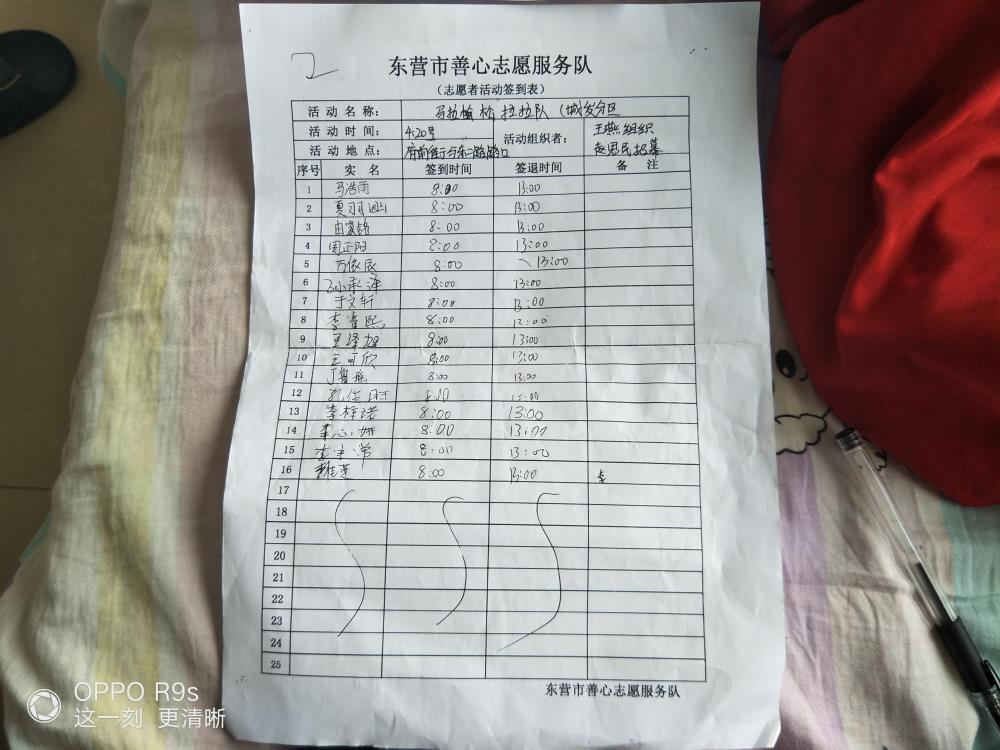 2
东营市善心志愿服务队
（志愿者活动签到表）
活动名称： 马拉松 拉拉队（城发分区
活动时间： 4.20号 活动组织者： 王燕组织 赵恩民招募
活动地点： 府前街与东二路路口
序号 实名 签到时间 签退时间 备注
1 马浩雨 8:00 13:00
2 夏羽 8:00 13:00
3 8:00 13:00
4 周正阳 8:00 13:00
5 万俵辰 8:00 13:00
6 孙承泽 8:00 13:00
7 于文轩 8:00 13:00
8 李 8:00 13:00
9 泽旭 8:00 13:00
10 王可欣 8:00 13:00
11 丁 8:00 13:00
12
13 李梓诺 8:00 13:00
14 心妍 8:00 13:00
15 8:00 13:00
16 桂莲 8:00 13:00 李
17
18
19
20
21
22
23
24
25
东营市善心志愿服务队
OPPO R9s
这一刻 更清晰